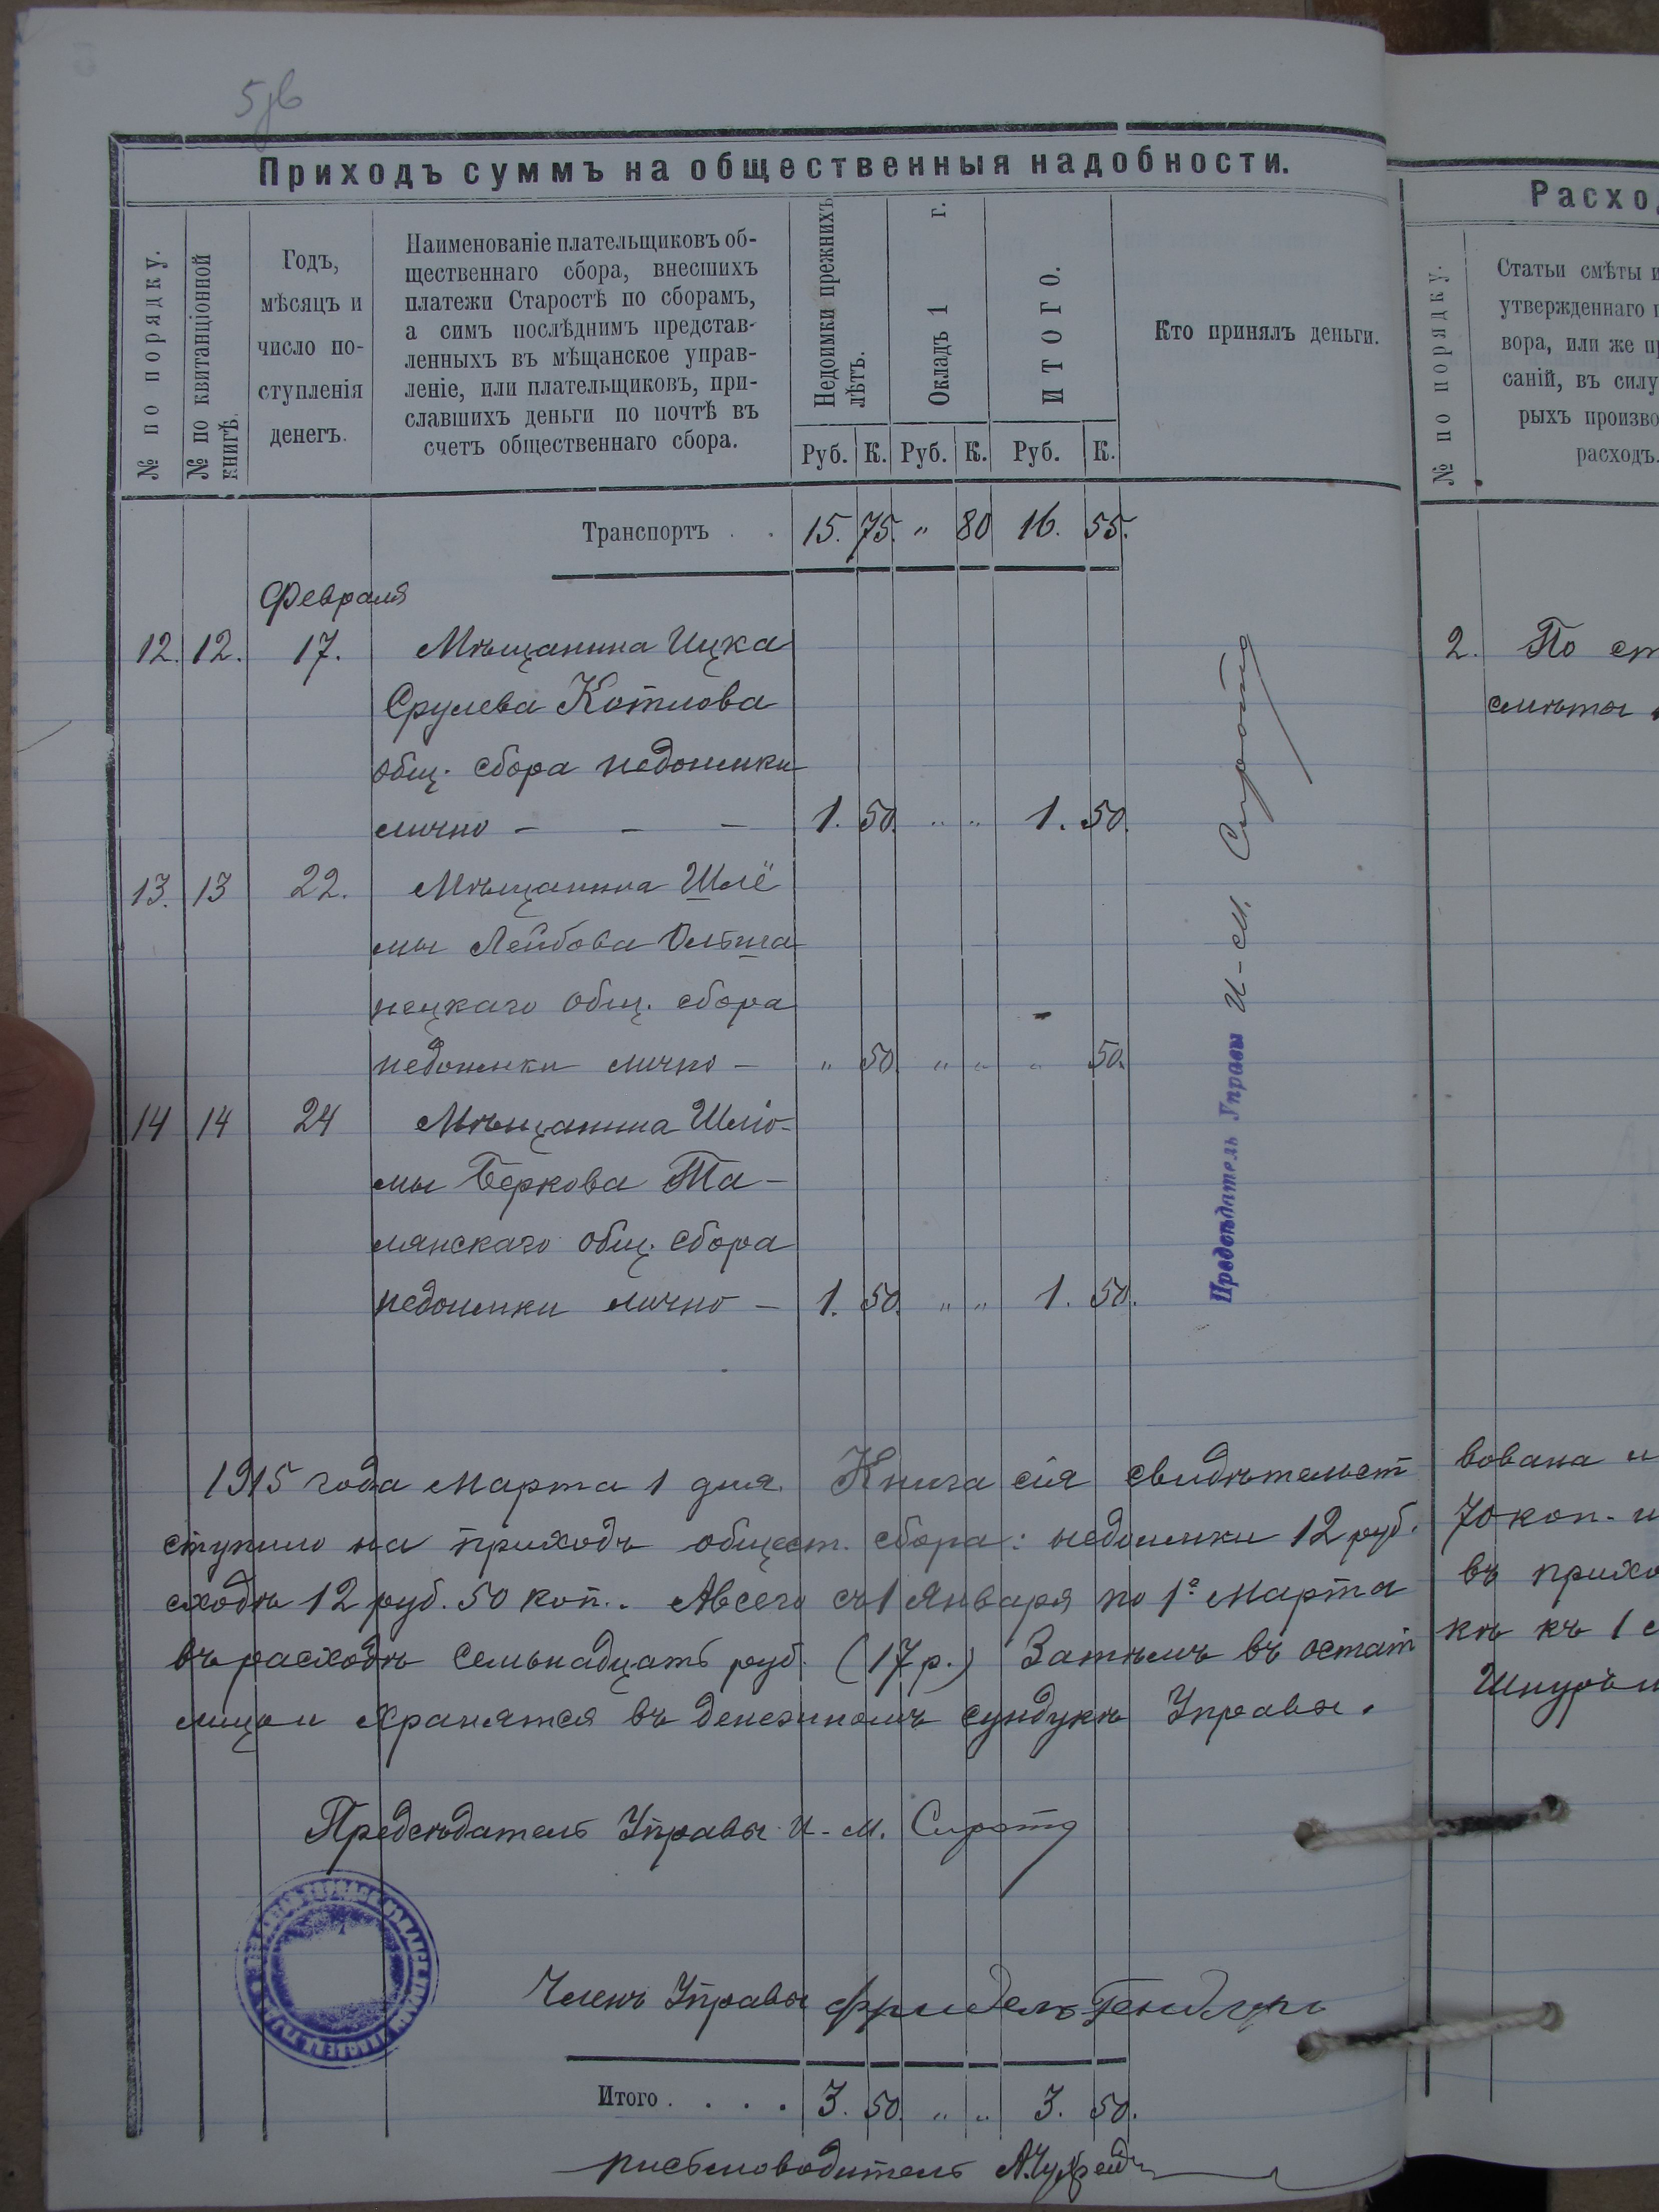 5 об
Приходъ суммъ на общественныя надобности.
№ по порядку.
№ по квитанціонной
книгѣ.
Годъ,
мѣсяцъ и
число по-
ступленія
денегъ.
Наименованіе плательщиковъ об-
щественнаго сбора, внесшихъ
платежи Старостѣ по сборамъ,
а симъ послѣднимъ представ-
ленныхъ въ мѣщанское управ-
леніе, или плательщиковъ, при-
славшихъ деньги по почтѣ въ
счетъ общественнаго сбора.
Недоимки прежнихъ
лѣтъ.
Окладъ 1 г.
ИТОГО.
Руб. К. Руб. К. Руб. К.
Кто принялъ деньги.
Транспортъ . . 15. 75. „ 80 16. 55.
Февраля
12. 12. 17. Мѣщанина Ицка
Срулева Котлова
общ. сбора недоимки
лично — — — 1. 50. „ „ 1. 50.
13. 13 22. Мѣщанина Шлё
мы Лейбова Ольша
нецкаго общ. сбора
недоимки лично — „ 50. „ „ „ 50.
14 14 24 Мѣщанина Шліо-
мы Беркова Та-
лянскаго общ. сбора
недоимки лично — 1. 50. „ „ 1. 50.
Предсѣдатель Управы И-М. Сирота
1915 года Марта 1 дня. Книга сія свидѣтельст
ступило на приходъ общест. сбора: недоимки 12 руб.
сходѣ 12 руб. 50 коп.. А всего съ 1 Января по 1е Марта
въ расходѣ семьнадцать руб. (17 р.) Затѣмъ въ остат
лицом хранятся въ денежномъ сундукѣ Управы.
Предсѣдатель Управы И-М. Сирота
Членъ Управы Фридель Гендлеръ
Итого . . . . 3. 50. „ „ 3. 50.
письмоводитель
Расхо
№ по порядку.
Статьи смѣты и
утвержденнаго п
вора, или же пр
саній, въ силу
рыхъ произво
расходъ.
2. По ст
смѣты
вована и
70 коп. и
въ прихо
кѣ къ 1